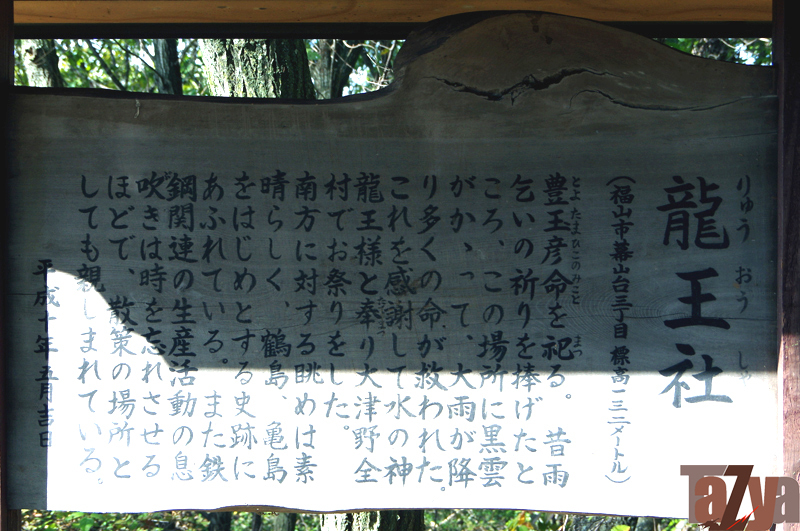 りゅう おう しゃ
龍王社
(福山市幕山台三丁目 標高一三二メートル)
とよ たまひこのみこと まつ
豊玉彦命を祀る。昔雨
乞いの祈りを捧げたと
ころ、この場所に黒雲
がかゝって、大雨が降
り多くの命が救われた。
これを感謝して水の神
龍王様と奉り大津野全
村でお祭りをした。
南方に対する眺めは素
晴らしく、鶴島、亀島
をはじめとする史跡に
あふれている。また鉄
鋼関連の生産活動の息
吹きは時を忘れさせる
ほどで、散策の場所と
しても親しまれている。
平成十年五月吉日
TaZya